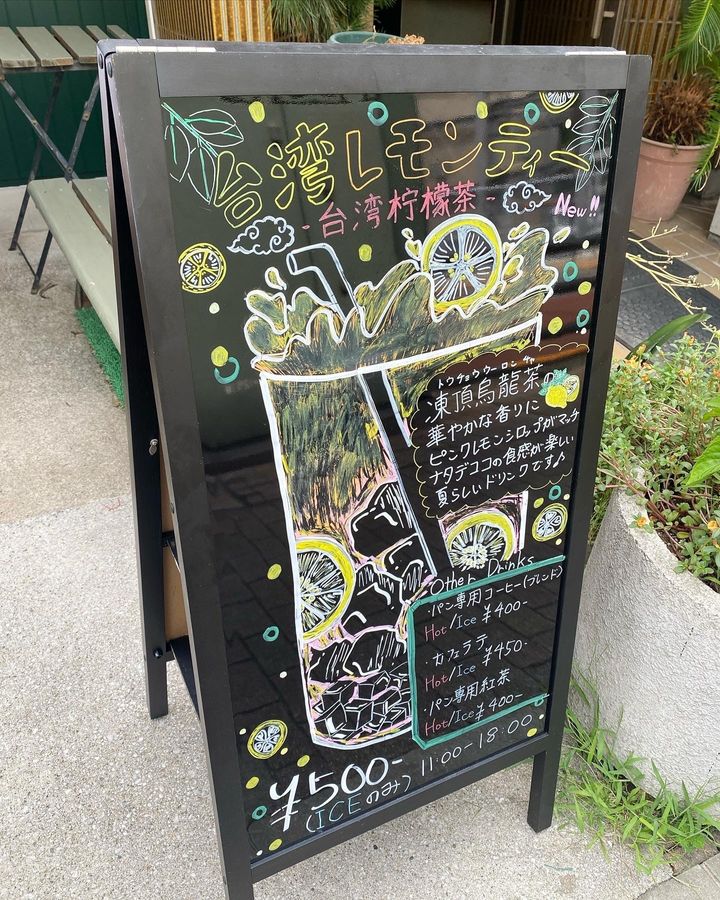 台湾レモンティー
-台湾柠檬茶-
New!!
トウチョウウーロンチャ
凍頂烏龍茶の
華やかな香りに
ピンクレモンシロップがマッチ
ナタデココの食感が楽しい
夏らしいドリンクです♪
Other Drinks
・パン専用コーヒー(ブレンド)
Hot/Ice ¥400-
・カフェラテ
Hot/Ice ¥450-
・パン専用紅茶
Hot/Ice ¥400-
¥500-
(ICEのみ) 11:00-18:00